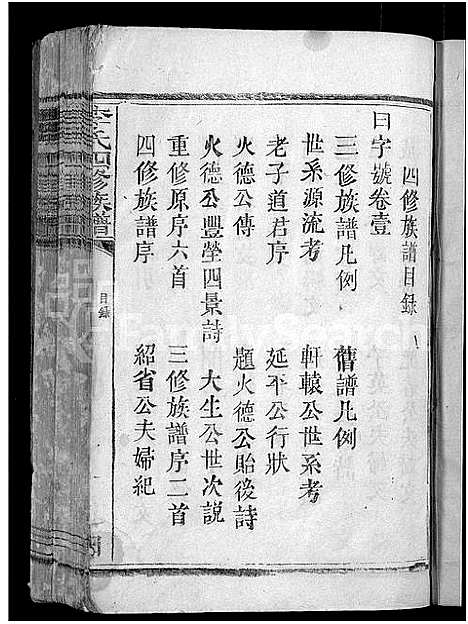 四修族譜目錄
日字號卷壹
三修族譜凡例 舊譜凡例
世系源流考 軒轅公世系考
老子道君序 延平公行狀
火德公傳 題火德公貽後詩
火德公豐塋四景詩 大生公世次說
重修原序六首 三修族譜序二首
四修族譜序 紹省公夫婦紀
李氏四修族譜
目錄